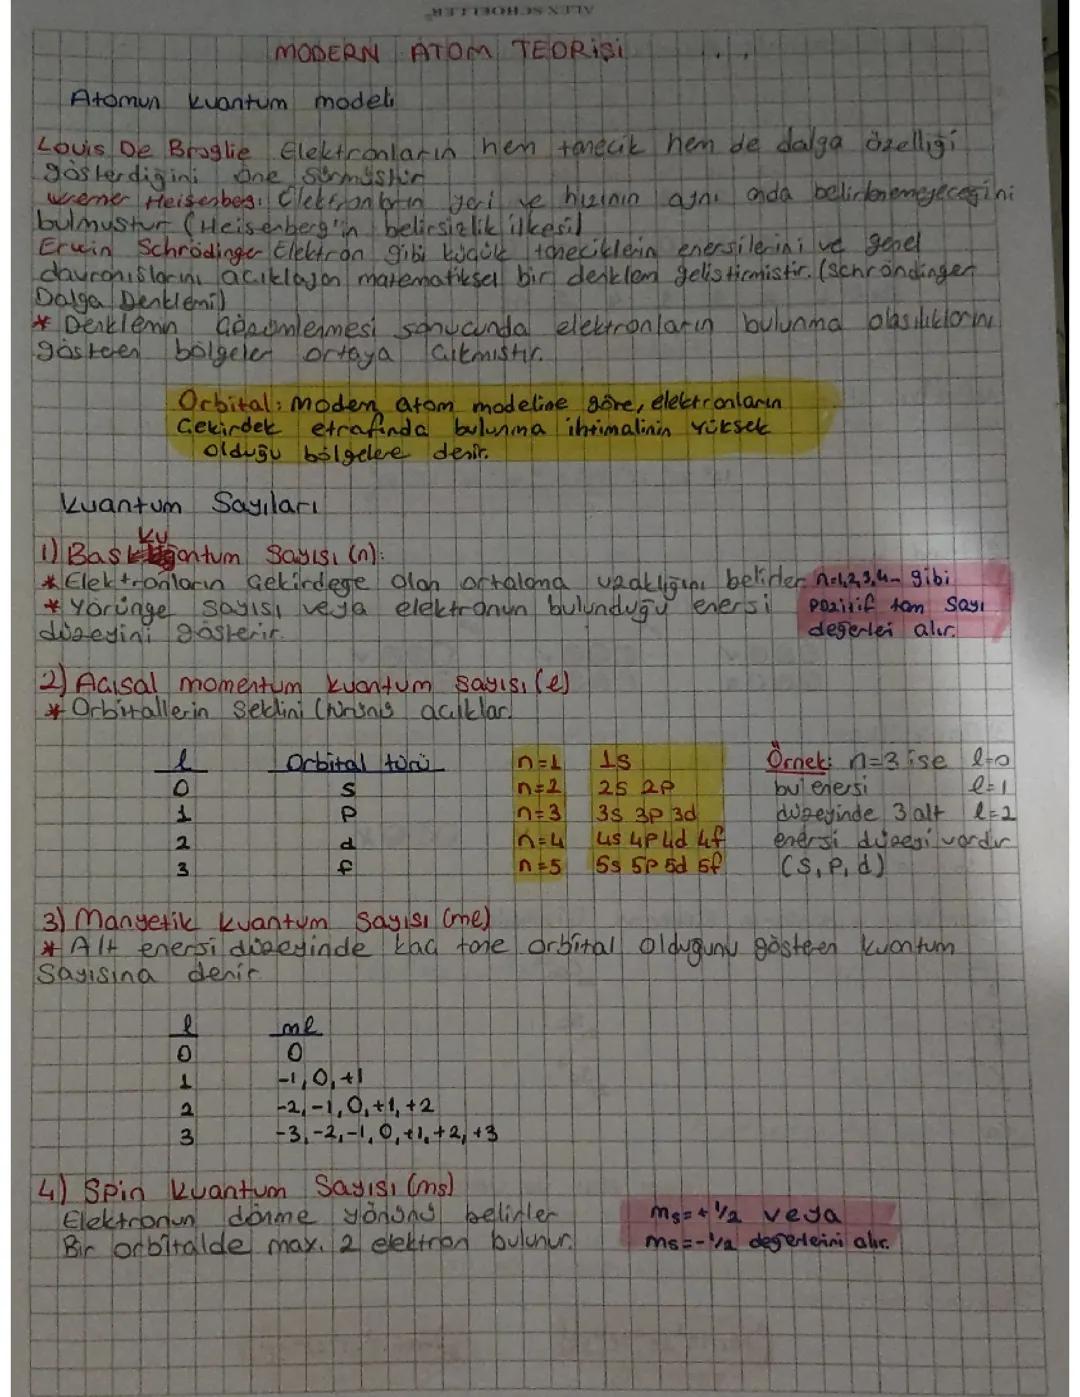 ALEX SCHOELLER
MODERN ATOM TEORİSİ
Atomun kuantum modeli
Louis De Broglie Elektronların hem tanecik hem de dalga özelliği
gösterdiğini öne sürmüştür
Werner Heisenberg: Elektronların yeri ve hızının aynı anda belirlenemeyeceğini
bulmuştur (Heisenberg'in belirsizlik ilkesi)
Erwin Schrödinger Elektron gibi küçük taneciklein enersilerini ve genel
davranışlarını açıklayan matematiksel bir denklem geliştirmiştir. (Schröndinger
Dalga Denklemi)
* Denklemin çözümlenmesi sonucunda elektronların bulunma olasılıklarını
gösteren bölgeler ortaya çıkmıştır.
Orbital: Modern atom modeline göre, elektronların
Çekirdek etrafında bulunma ihtimalinin yüksek
olduğu bölgelere denir.
Kuantum Sayıları
1) Baş kuantum Sayısı (n):
* Elektronların Çekirdeğe olan ortalama uzaklığını belirler n=1,2,3,4- gibi
* Yörünge sayısı veya elektronun bulunduğu enersi pozitif tam sayı
düzeyini gösterir. değerlei alır.
2) Açısal momentum kuantum sayısı (l)
* Orbitallerin Şeklini (türünü açıklar.
l Orbital türü n=1 1s Örnek: n=3 ise l=0
0 s n=2 2s 2p bu enersi l=1
1 p n=3 3s 3p 3d düzeyinde 3 alt l=2
2 d n=4 4s 4p 4d 4f enersi düzeyi vardır
3 f n=5 5s 5p 5d 5f (s, p, d)
3) Manyetik kuantum Sayısı (me)
* Alt enersi düzeyinde kaç tane orbital olduğunu gösteren kuantum
Sayısına denir
l ml
0 0
1 -1, 0, +1
2 -2, -1, 0, +1, +2
3 -3, -2, -1, 0, +1, +2, +3
4) Spin kuantum Sayısı (ms)
Elektronun dönme yönünü belirler ms=+1/2 veya
Bir orbitalde max. 2 elektron bulunur. ms=-1/2 değerleini alır.